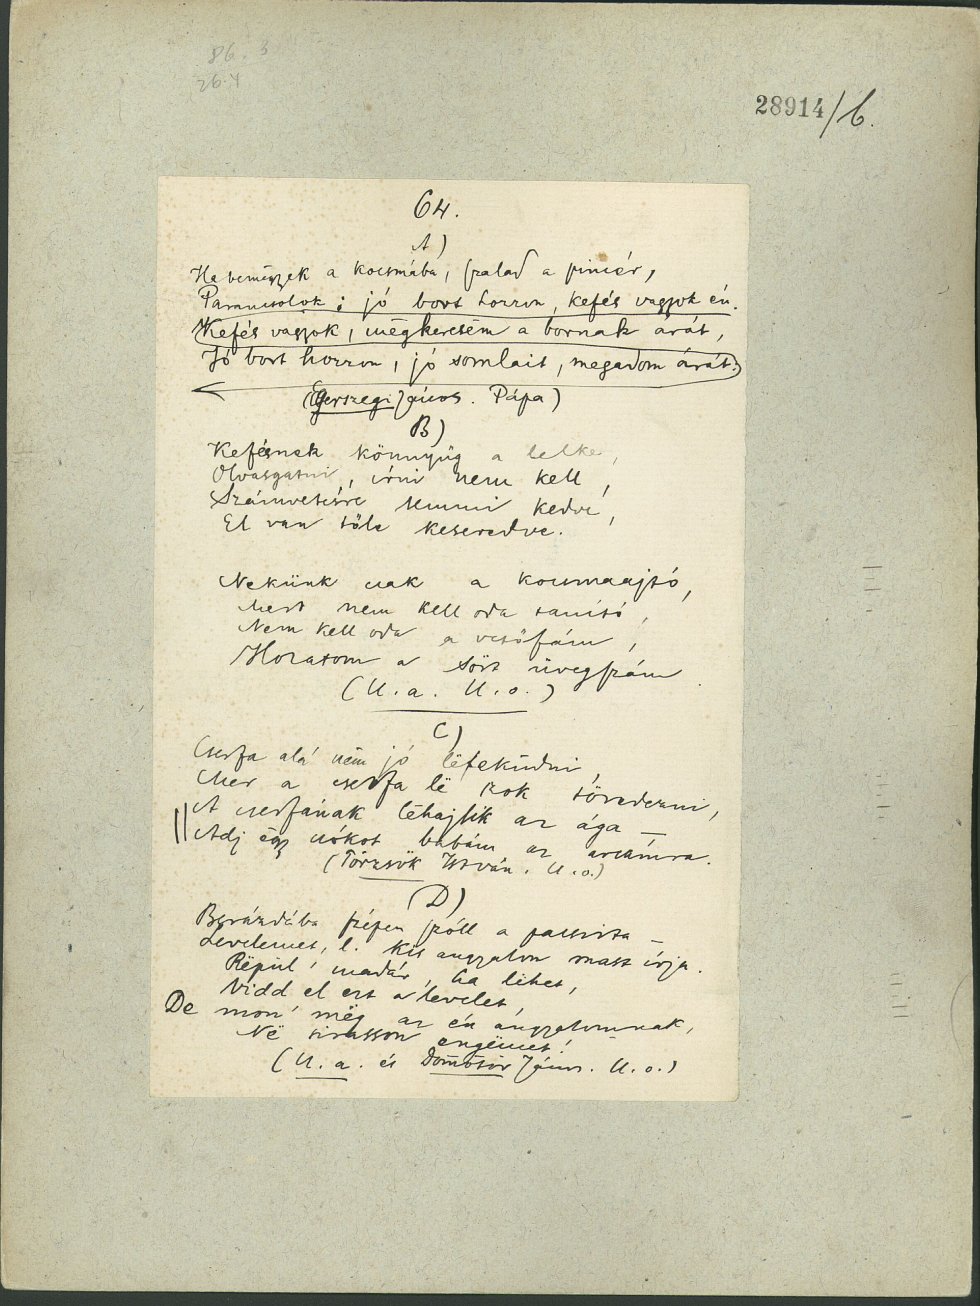 86.3
26.4
28914/6.
64.
A)
Ha bemëgyek a kocsmába, szalad a pincér,
Parancsolok: jó bort hozzon, kefés vagyok én.
Kefés vagyok, mëgkeresëm a bornak árát,
Jó bort hozzon, jó somlait, megadom árát.
(Egerszegi János. Pápa)
B)
Kefésnek könnyüg a lelke,
Olvasgatni, írni nem kell,
Számvetésre semmi kedve,
El van tőle keseredve.
Nekünk csak a kocsmaajtó,
Mert nem kell oda tanító,
Nem kell oda a vésőfám,
Hozatom a sört üvegszám.
(U.a. U.o.)
C)
Cserfa alá nëm jó lëfekűdni,
Mer a cserfa lë szok töredezni,
A cserfának lëhajlik az ága —
Adj ëgy csókot babám az arcámra.
(Törzsök István. U.o.)
D)
Barázdába szépen szóll a pacsirta —
Levelemet, l. kis angyalom mast írja.
Repűl' madár, ha lëhet,
Vidd el ezt a levelet,
De mon' mëg az én angyalomnak,
Në sirasson engëmet!
(U.a. és Dömötör János. U.o.)